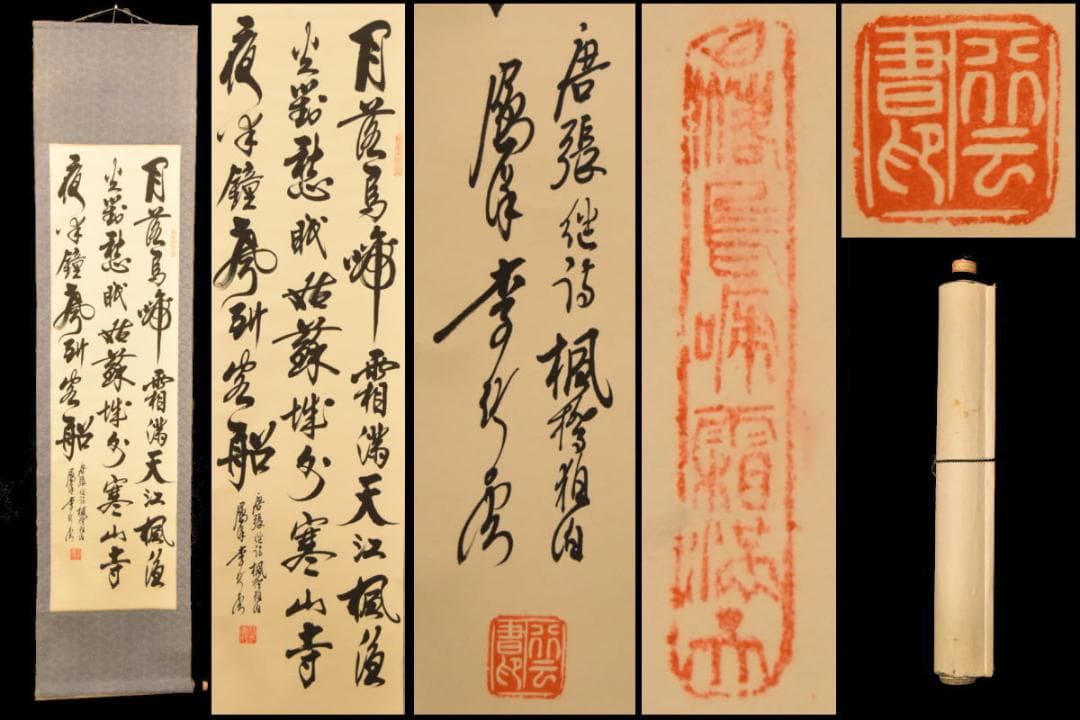 月落烏啼霜滿天江楓漁
火對愁眠姑蘇城外寒山寺
夜半鐘聲到客船
唐張継詩楓橋夜泊
李行雲
行云書印
月落烏啼霜滿天江楓漁
火對愁眠姑蘇城外寒山寺
夜半鐘聲到客船
唐張継詩楓橋夜泊
李行雲
行云書印
唐張継詩楓橋夜泊
李行雲
行云書印
月落烏啼霜滿天
行云書印